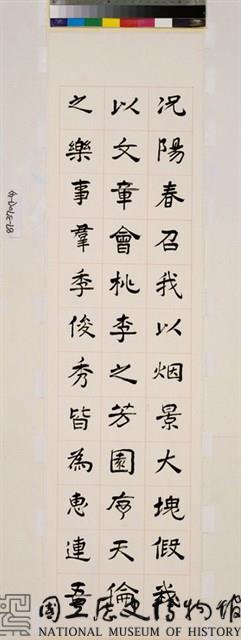 况陽春召我以烟景大塊假我
以文章會桃李之芳園序天倫
之樂事羣季俊秀皆為惠連吾
國立歷史博物館
NATIONAL MUSEUM OF HISTORY